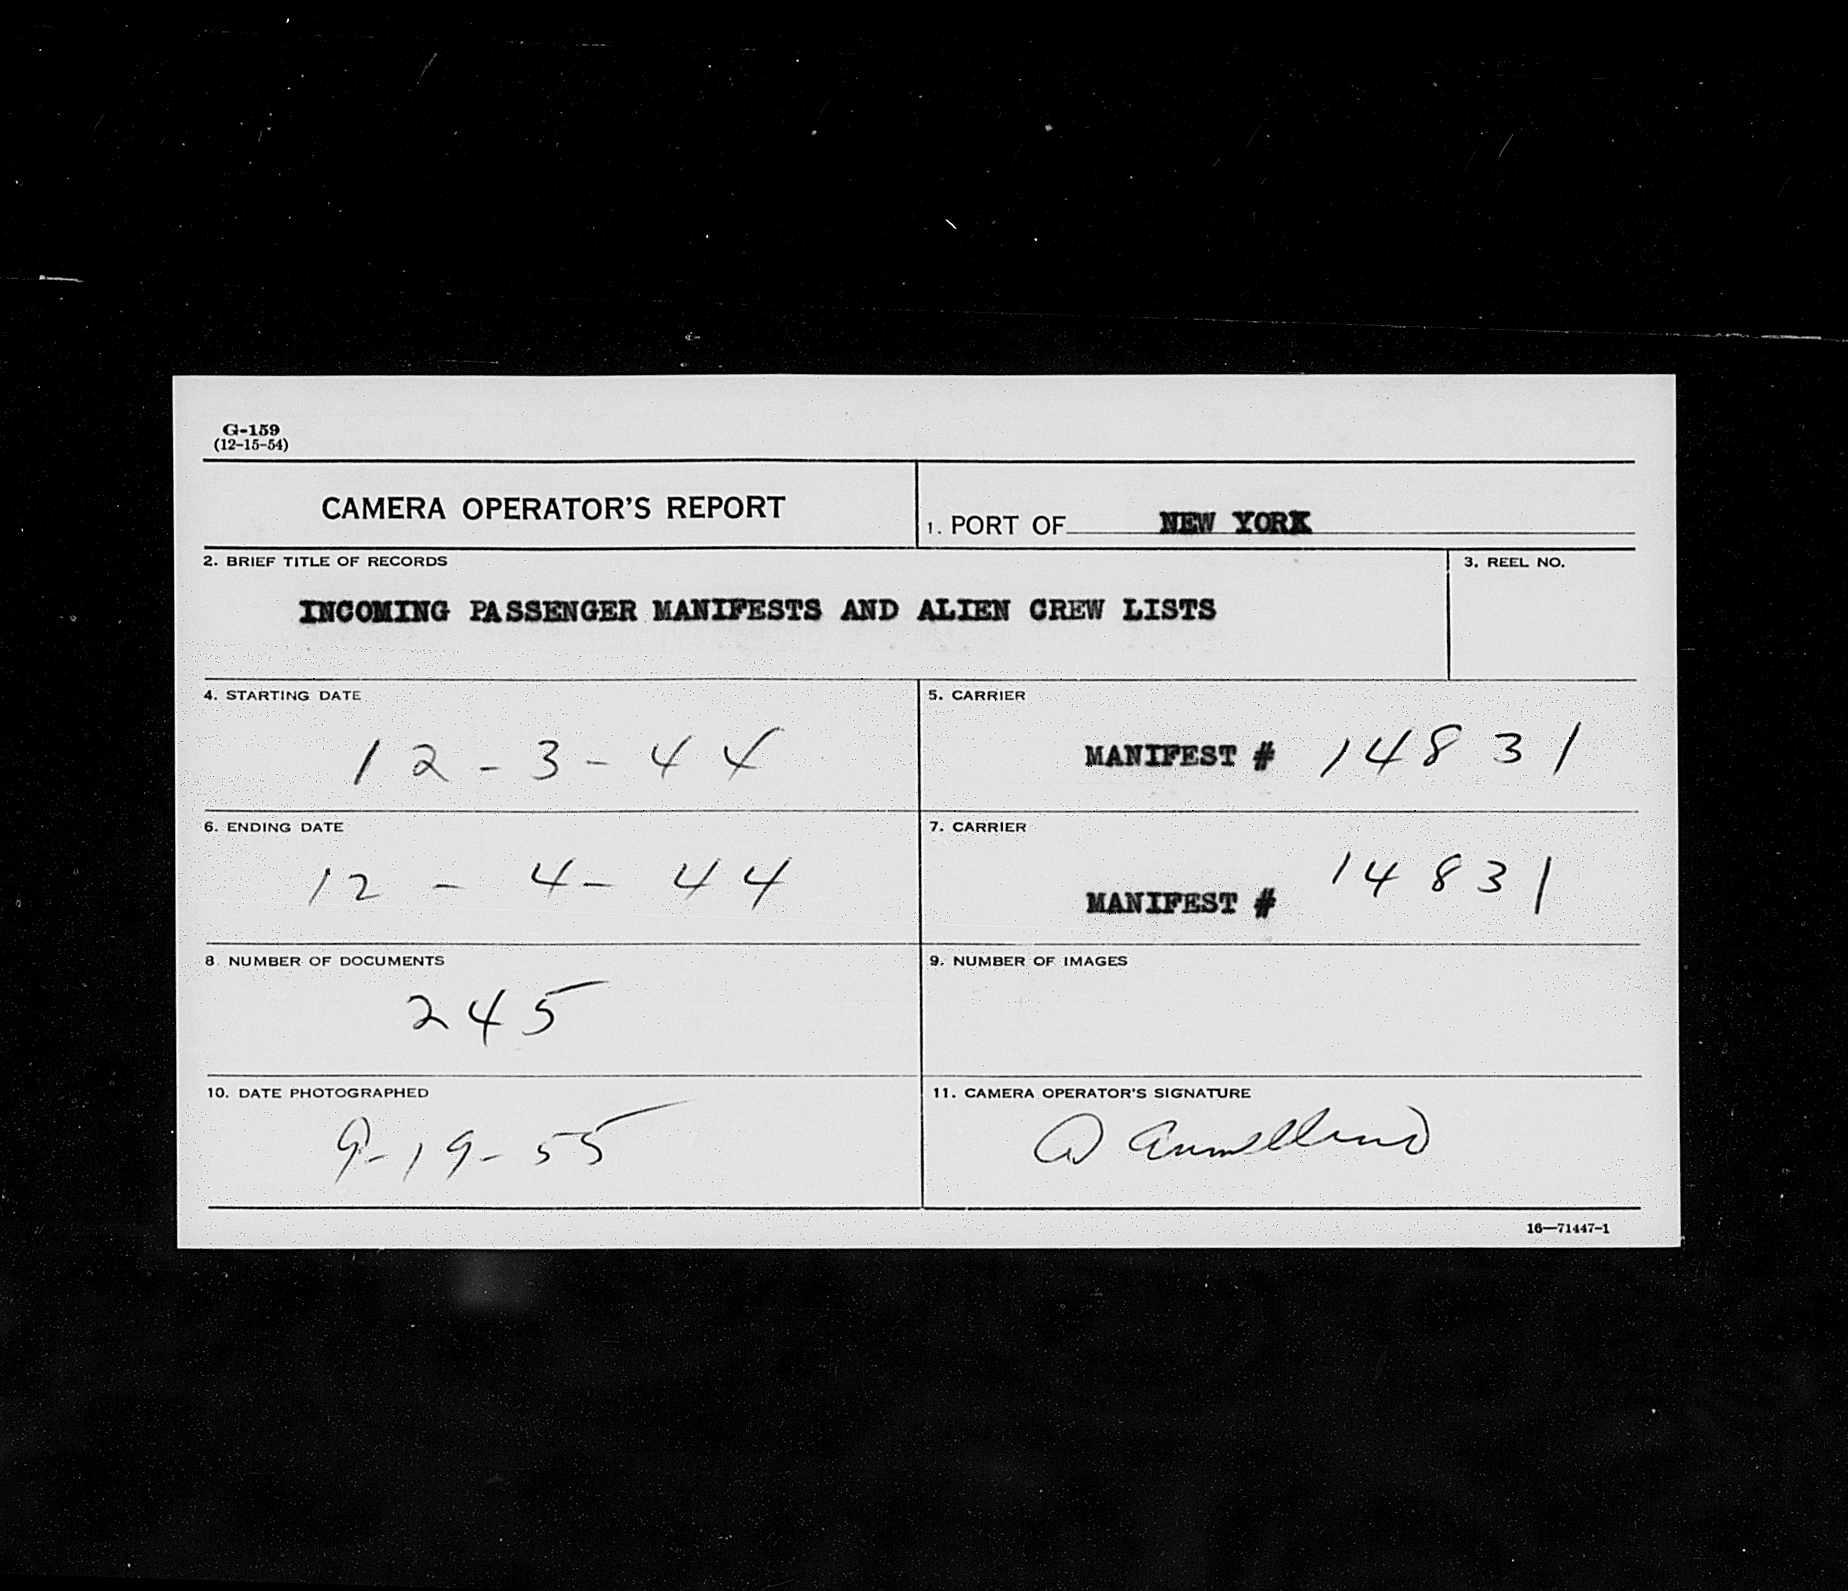 G-159
(12-15-54)
CAMERA OPERATOR'S REPORT
1. PORT OF NEW YORK
2. BRIEF TITLE OF RECORDS
INCOMING PASSENGER MANIFESTS AND ALIEN CREW LISTS
3. REEL NO.
4. STARTING DATE
12-3-44
5. CARRIER
MANIFEST # 14831
6. ENDING DATE
12-4-44
7. CARRIER
MANIFEST # 14831
8. NUMBER OF DOCUMENTS
245
9. NUMBER OF IMAGES
10. DATE PHOTOGRAPHED
9-19-55
11. CAMERA OPERATOR'S SIGNATURE
16—71447-1